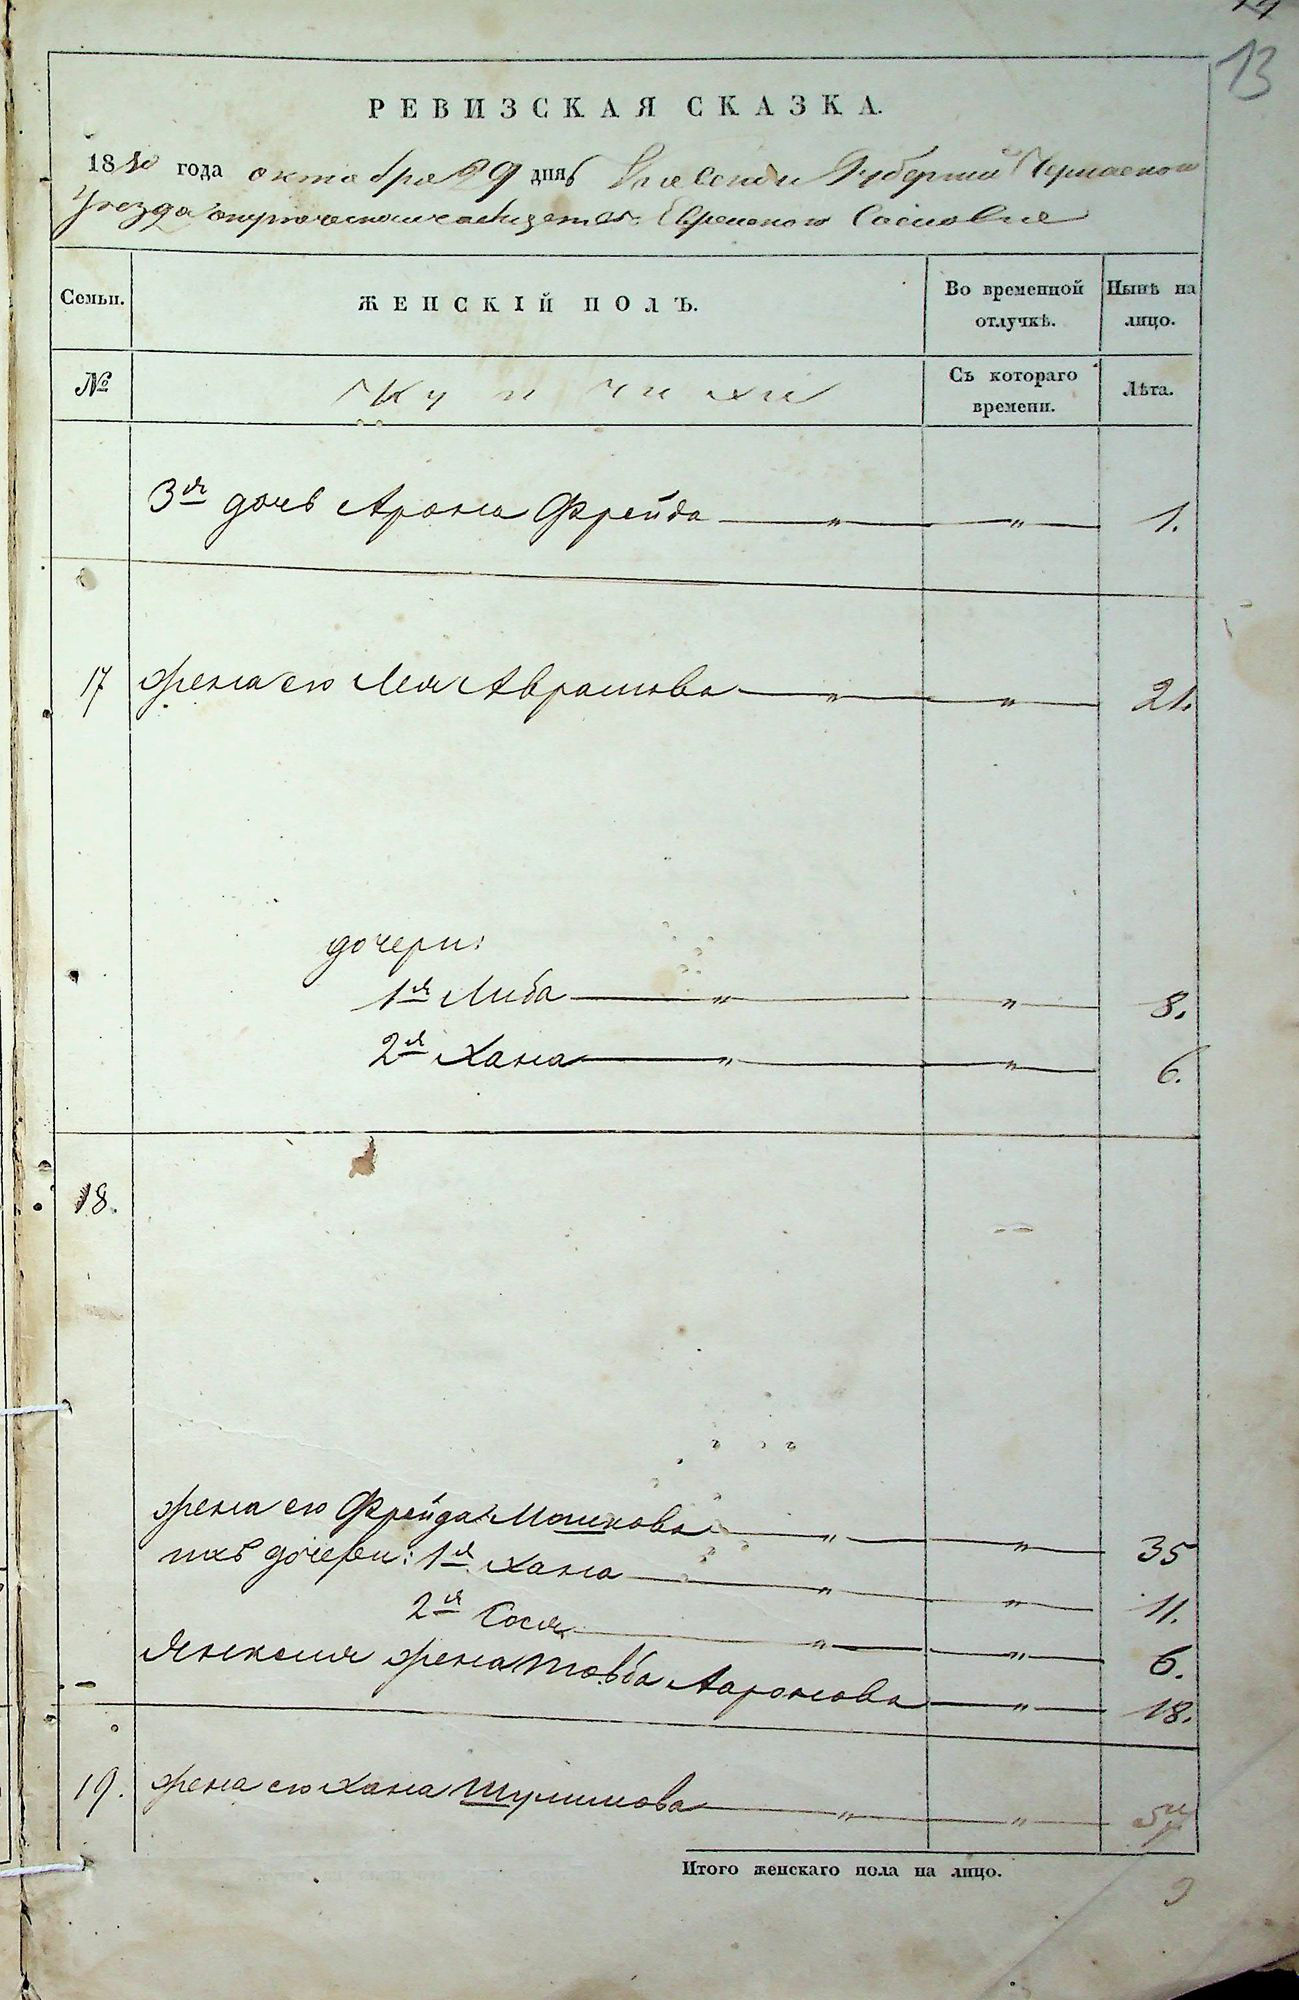 13
РЕВИЗСКАЯ СКАЗКА.
1850 года октября 29 дня Киевской Губернии Черкаской
Уезда Еврейского Сословия
Семьи.
ЖЕНСКІЙ ПОЛЪ.
Во временной отлучкѣ.
Нынѣ на лицо.
№
Купчихи
Съ котораго времени.
Лѣта.
3я дочь Арона Фрейда — " — " — 1.
17 жена его Лея Аврамова — " — " — 21.
дочери:
1я Либа — " — " — 8.
2я Хана — " — " — 6.
18.
жена его Фрейда Мошкова — " — " — 35
ихъ дочери: 1я Хана — " — " — 11.
2я Сося — " — " — 6.
Янкеля жена Товба Ааронова — " — 18.
19. жена его Хана Шулимова — " — "
Итого женскаго пола на лицо.
9